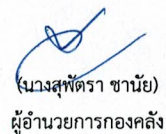 (นางสุพัตรา ซานัย)
ผู้อำนวยการกองคลัง